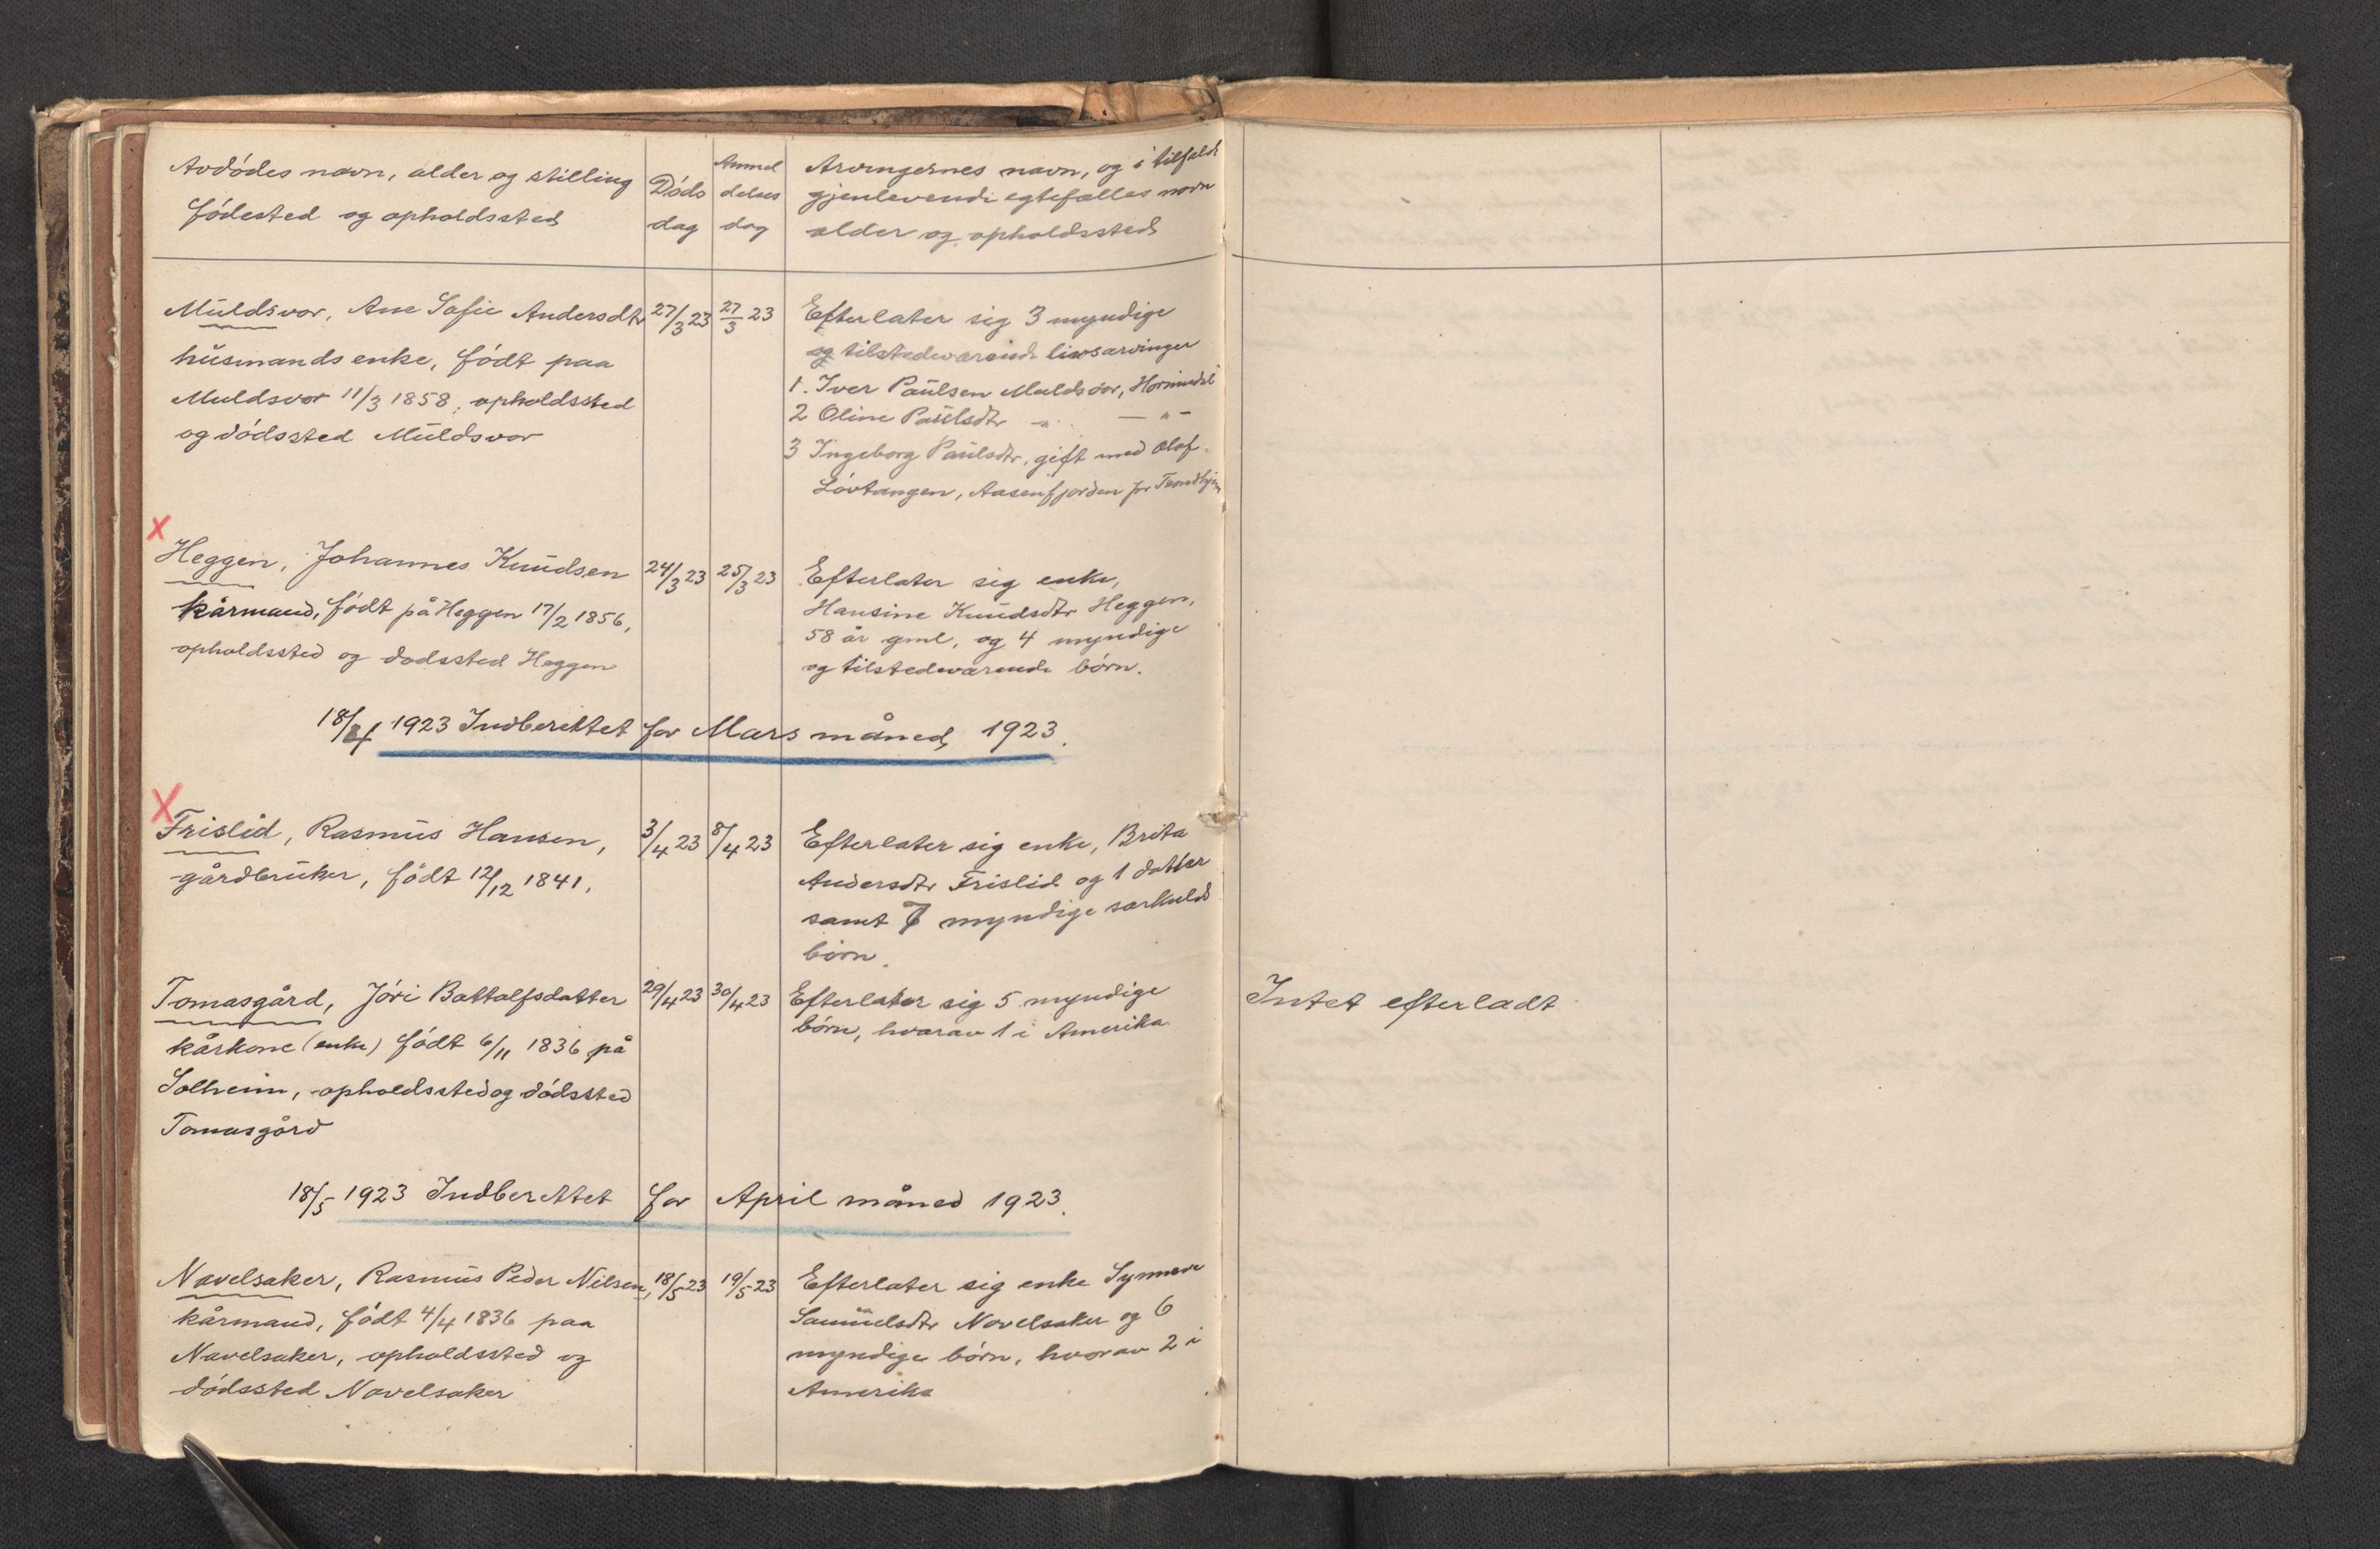 Avdødes navn, alder og stilling
fødested og opholdssted
Døds
dag
Anmel
delses
dag
Arvingernes navn, og i tilfælde
gjenlevende egtefælles navn
alder og opholdssted
Muldsvor, Ane Sofie Andersdtr
husmands enke, født paa
Muldsvor 11/3 1858, opholdssted
og dødssted Muldsvor
27/3 23
27/3 23
Efterlater sig 3 myndige
og tilstedeværende livsarvinger
1. Iver Paulsen Muldsvor, Hornindal
2 Oline Paulsdtr -"- -"-
3 Ingeborg Paulsdtr, gift med Olaf
Løvtangen, Aasenfjorden pr Trondhjem
X
Heggen, Johannes Knudsen
kårmand, født på Heggen 17/2 1856,
opholdssted og dødssted Heggen
24/3 23
25/3 23
Efterlater sig enke,
Hansine Knudsdtr Heggen,
58 år gml, og 4 myndige
og tilstedeværende børn.
18/4 1923 Indberettet for Mars måned 1923.
X
Frislid, Rasmus Hansen,
gårdbruker, født 12/12 1841.
3/4 23
8/4 23
Efterlater sig enke, Brita
Andersdtr Frislid og 1 datter
samt 7 myndige særkulds
børn.
Tomasgård, Jóri Battolfsdatter
kårkone (enke) født 6/11 1836 på
Solheim, opholdssted og dødssted
Tomasgård
29/4 23
30/4 23
Efterlater sig 5 myndige
børn, hvorav 1 i Amerika.
Intet efterladt
18/5 1923 Indberettet for April måned 1923.
Navelsaker, Rasmus Peder Nilsen,
kårmand, født 4/4 1836 paa
Navelsaker, opholdssted og
dødssted Navelsaker
18/5 23
19/5 23
Efterlater sig enke Synneve
Samuelsdtr Navelsaker og 6
myndige børn, hvorav 2 i
Amerika